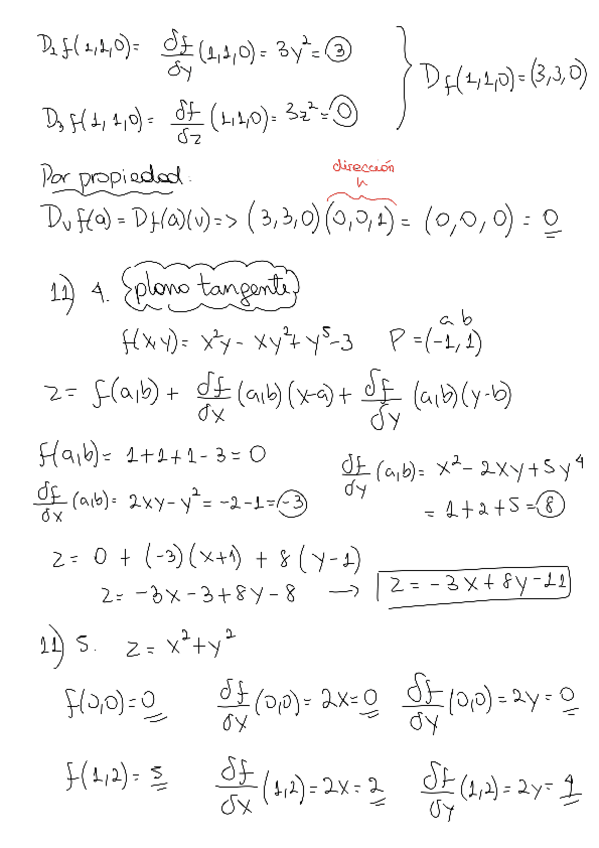 D₂ f(1,1,0) = δf/δy (1,1,0) = 3y² = 3
D₃ f(1,1,0) = δf/δz (1,1,0) = 3z² = 0
} Df(1,1,0) = (3,3,0)
Por propiedad:
dirección
h
Dᵥ f(a) = Df(a)(v) => (3,3,0)(0,0,1) = (0,0,0) = 0
11) 4. plano tangente
a b
f(x,y) = x²y - xy² + y⁵ - 3 P = (-1,1)
z = f(a,b) + δf/δx (a,b)(x-a) + δf/δy (a,b)(y-b)
f(a,b) = 1+1+1-3 = 0
δf/δx (a,b) = 2xy - y² = -2-1 = -3
δf/δy (a,b) = x² - 2xy + 5y⁴
= 1+2+5 = 8
z = 0 + (-3)(x+1) + 8(y-1)
z = -3x - 3 + 8y - 8 → z = -3x + 8y - 11
11) 5. z = x² + y²
f(0,0) = 0 δf/δx (0,0) = 2x = 0 δf/δy (0,0) = 2y = 0
f(1,2) = 5 δf/δx (1,2) = 2x = 2 δf/δy (1,2) = 2y = 4